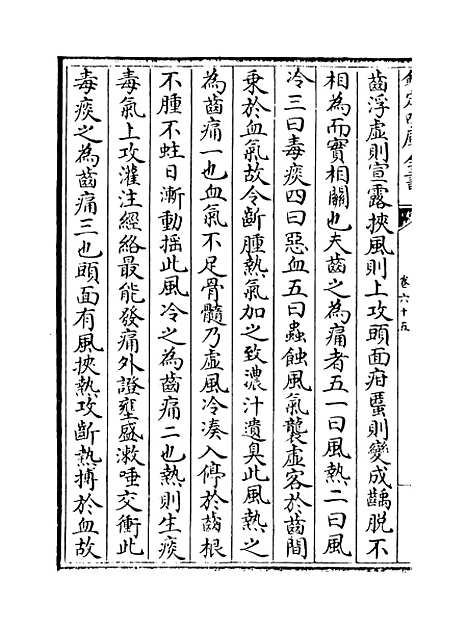 欽定四庫全書
卷六十五
齒浮虛則宣露挾風則上攻頭面疳䘌則變成齲脱不
相為而實相關也夫齒之為痛者五一曰風熱二曰風
冷三曰毒痰四曰惡血五曰蟲蝕風氣襲虛客於齒間
乗於血氣故令齗腫熱氣加之致濃汁遺臭此風熱之
為齒痛一也血氣不足骨髓乃虛風冷凑入停於齒根
不腫不蛀日漸動揺此風冷之為齒痛二也熱則生痰
毒氣上攻灌注經絡最能發痛外證壅盛漱唾交衝此
毒痰之為齒痛三也頭面有風挾熱攻齗熱搏於血故